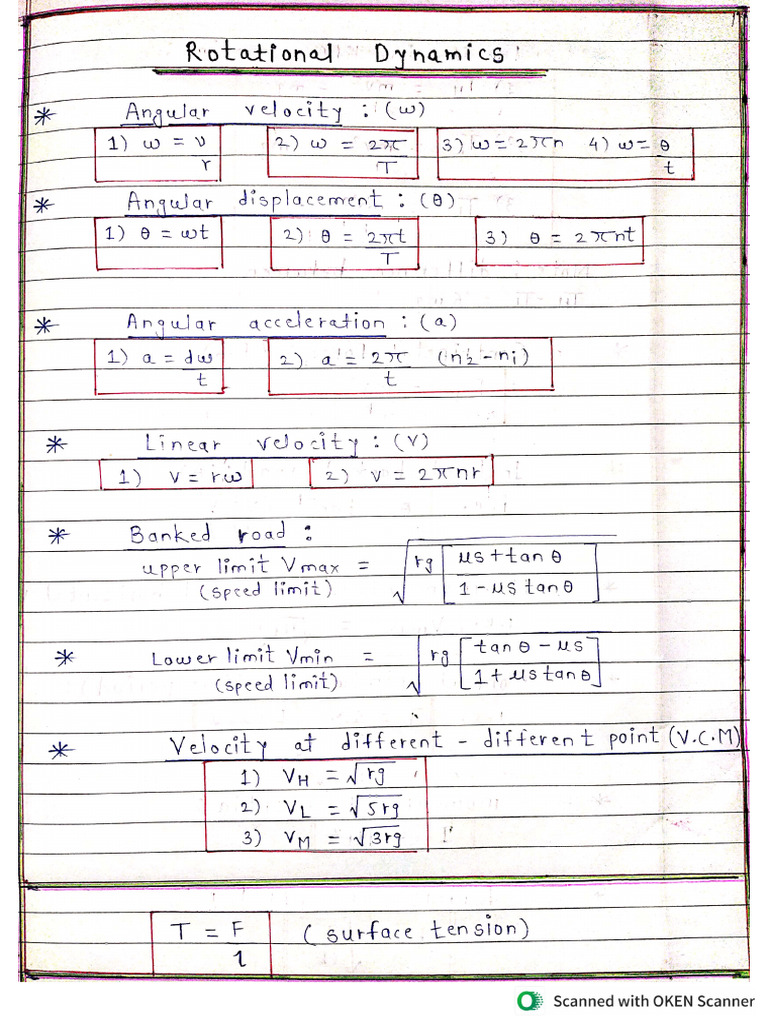 Rotational Dynamics
* Angular velocity : (ω)
1) ω = v/r 2) ω = 2π/T 3) ω = 2πn 4) ω = θ/t
* Angular displacement : (θ)
1) θ = ωt 2) θ = 2πt/T 3) θ = 2πnt
* Angular acceleration : (a)
1) a = dω/t 2) a = 2π/t (n2 - n1)
* Linear velocity : (V)
1) v = rω 2) v = 2πnr
* Banked road :
upper limit Vmax = √rg [μs + tan θ / 1 - μs tan θ]
(speed limit)
* Lower limit Vmin = √rg [tan θ - μs / 1 + μs tan θ]
(speed limit)
* Velocity at different - different point (V.C.M)
1) VH = √rg
2) VL = √5rg
3) VM = √3rg
T = F/l (surface tension)
Scanned with OKEN Scanner